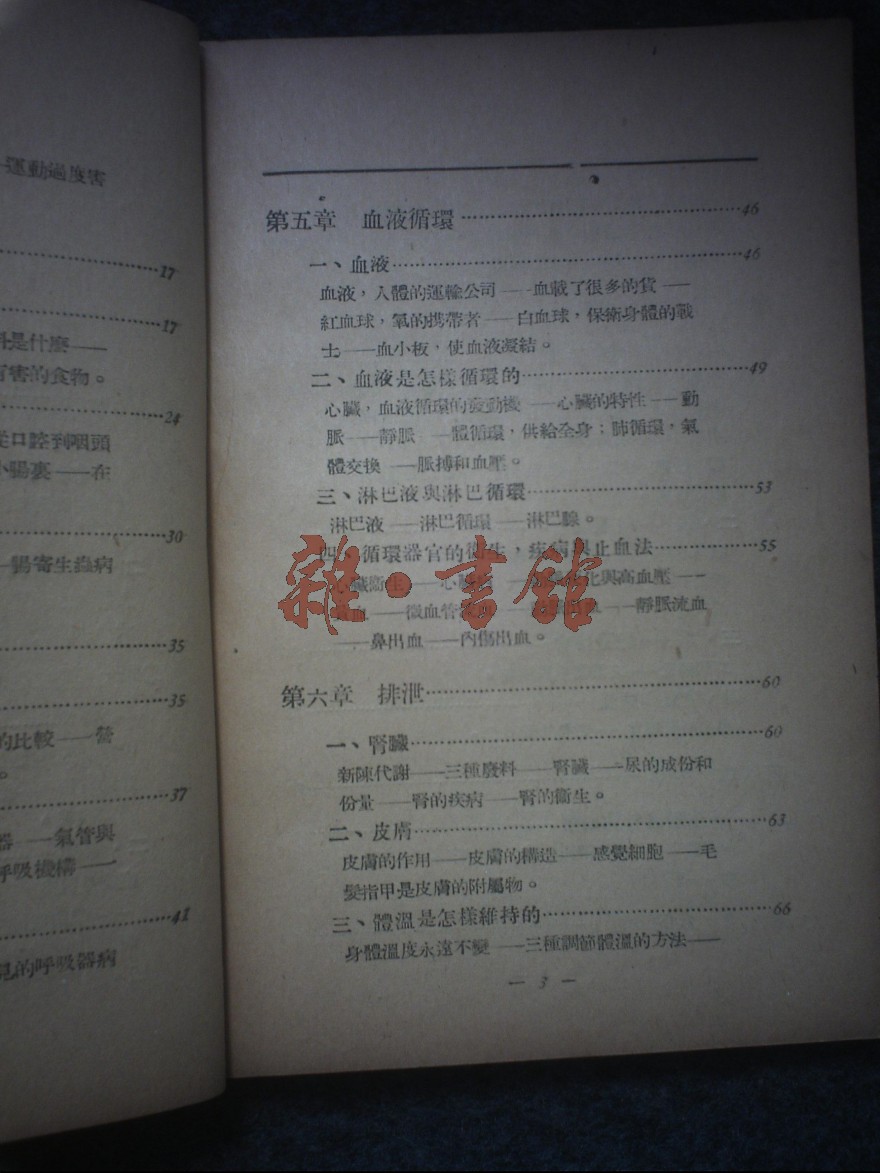 運動過度害
17
17
料是什麼——
有害的食物。
24
從口腔到咽頭
小腸裏——在
30
腸寄生蟲病
35
35
的比較——營
。
37
器——氣管與
呼吸機構——
41
見的呼吸器病
第五章 血液循環……46
一、血液……46
血液，人體的運輸公司——血載了很多的貨——
紅血球，氧的携帶者——白血球，保衛身體的戰
士——血小板，使血液凝結。
二、血液是怎樣循環的……49
心臟，血液循環的發動機——心臟的特性——動
脈——靜脈——體循環，供給全身；肺循環，氣
體交換——脈搏和血壓。
三、淋巴液與淋巴循環……53
淋巴液——淋巴循環——淋巴腺。
四、循環器官的衛生，疾病與止血法……55
心臟衛生——心臟 化與高血壓——
血——微血管 ——靜脈流血
——鼻出血——內傷出血。
第六章 排泄……60
一、腎臟……60
新陳代謝——三種廢料——腎臟——尿的成份和
份量——腎的疾病——腎的衞生。
二、皮膚……63
皮膚的作用——皮膚的構造——感覺細胞——毛
髮指甲是皮膚的附屬物。
三、體溫是怎樣維持的……66
身體溫度永遠不變——三種調節體溫的方法——
— 3 —
雜·書館